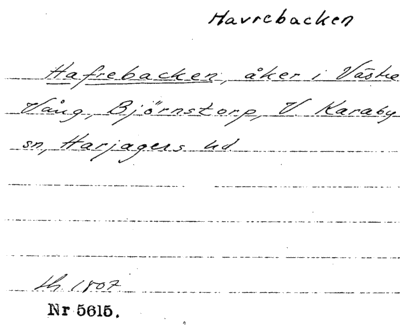 Havrebacken
Hafrebacken, åker i Västre
Vång, Björnstorp, V Karaby
sn, Harjagers hd
1807
Nr 5615.